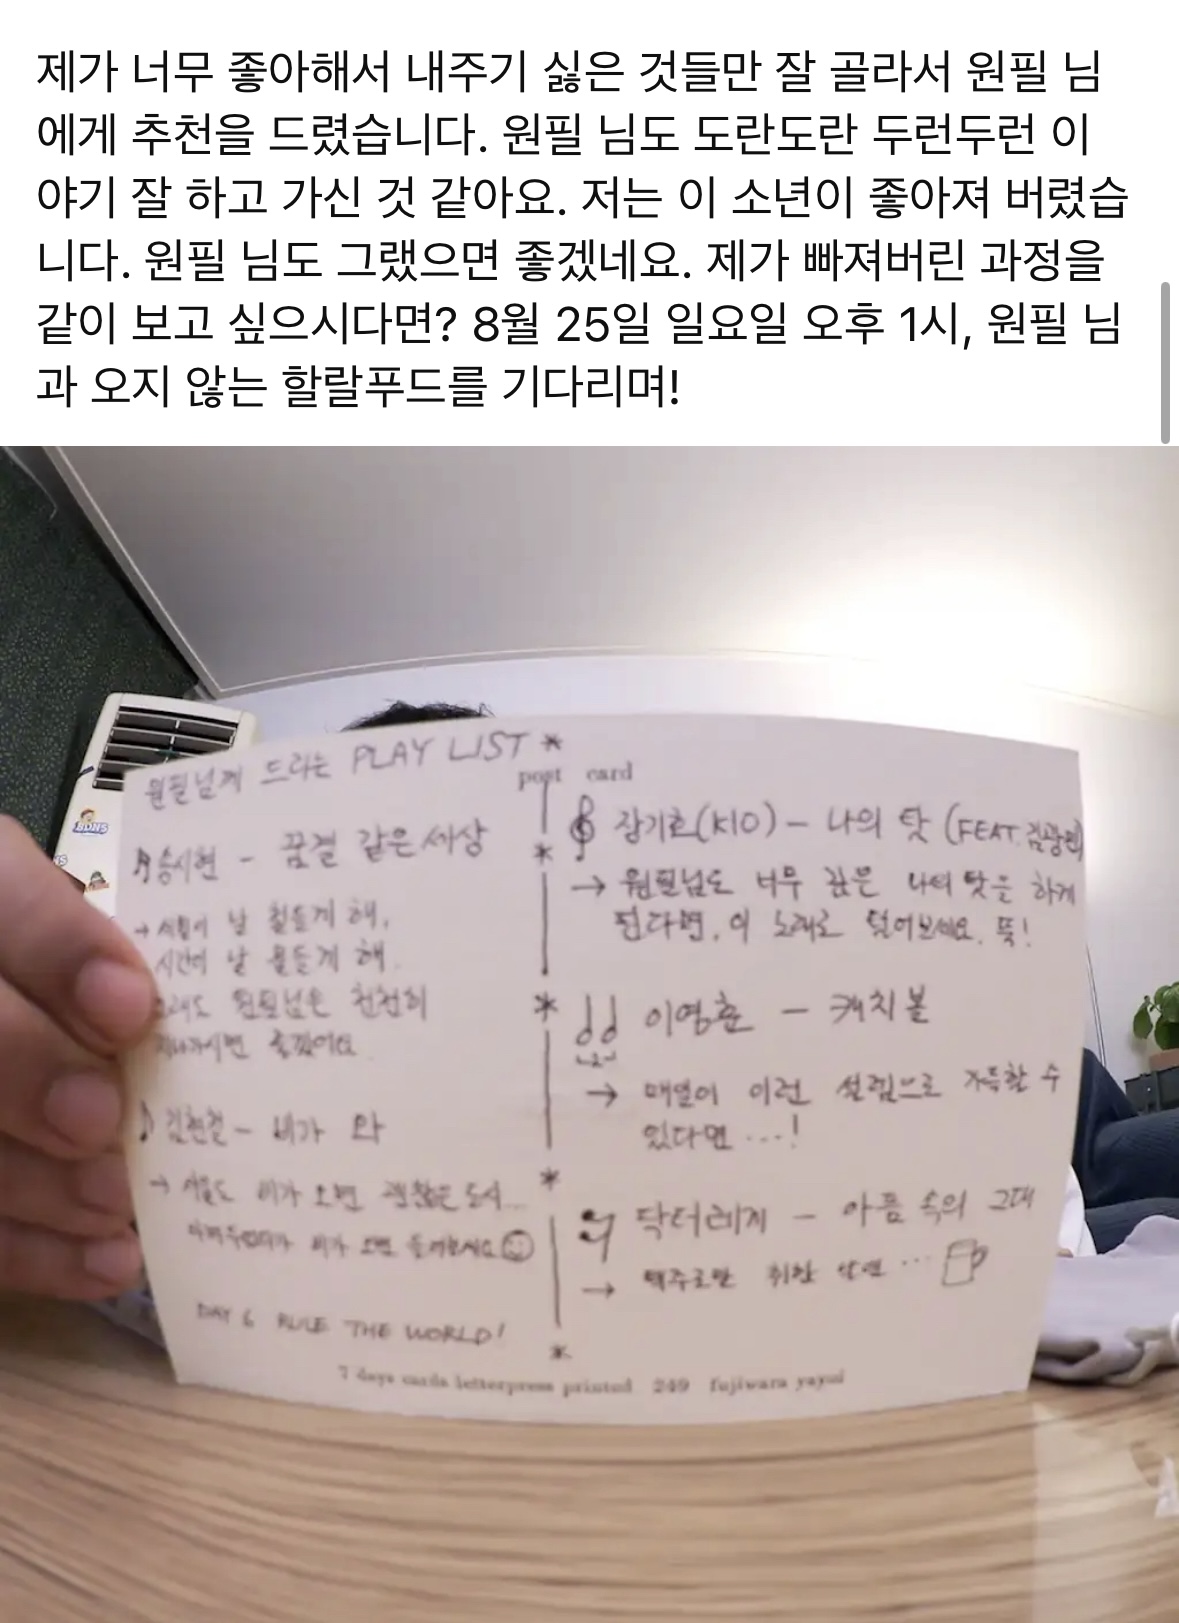 제가 너무 좋아해서 내주기 싫은 것들만 잘 골라서 원필 님
에게 추천을 드렸습니다. 원필 님도 도란도란 두런두런 이
야기 잘 하고 가신 것 같아요. 저는 이 소년이 좋아져 버렸습
니다. 원필 님도 그랬으면 좋겠네요. 제가 빠져버린 과정을
같이 보고 싶으시다면? 8월 25일 일요일 오후 1시, 원필 님
과 오지 않는 할랄푸드를 기다리며!
원필님께 드리는 PLAY LIST
post card
송시현 - 꿈결 같은 세상
→ 사람이 날 힘들게 해,
시간이 날 물들게 해.
원필님은 천천히
김현철 - 비가 와
→ 서울도 비가 오면 괜찮은 도시...
비가 오면 들어보세요
DAY 6 RULE THE WORLD!
장기호(KIO) - 나의 탓 (FEAT. 김광민)
→ 원필님도 너무 깊은 나의 탓을 하게
된다면, 이 노래로 덜어보세요. 뚝!
이영훈 - 캐치볼
→ 매일이 이런 설렘으로 가득할 수
있다면 ...!
닥터레게 - 아픔 속의 그대
→ 맥주로만 취한 밤엔 ...
7 days cards letterpress printed 249 fujiwara yayoi